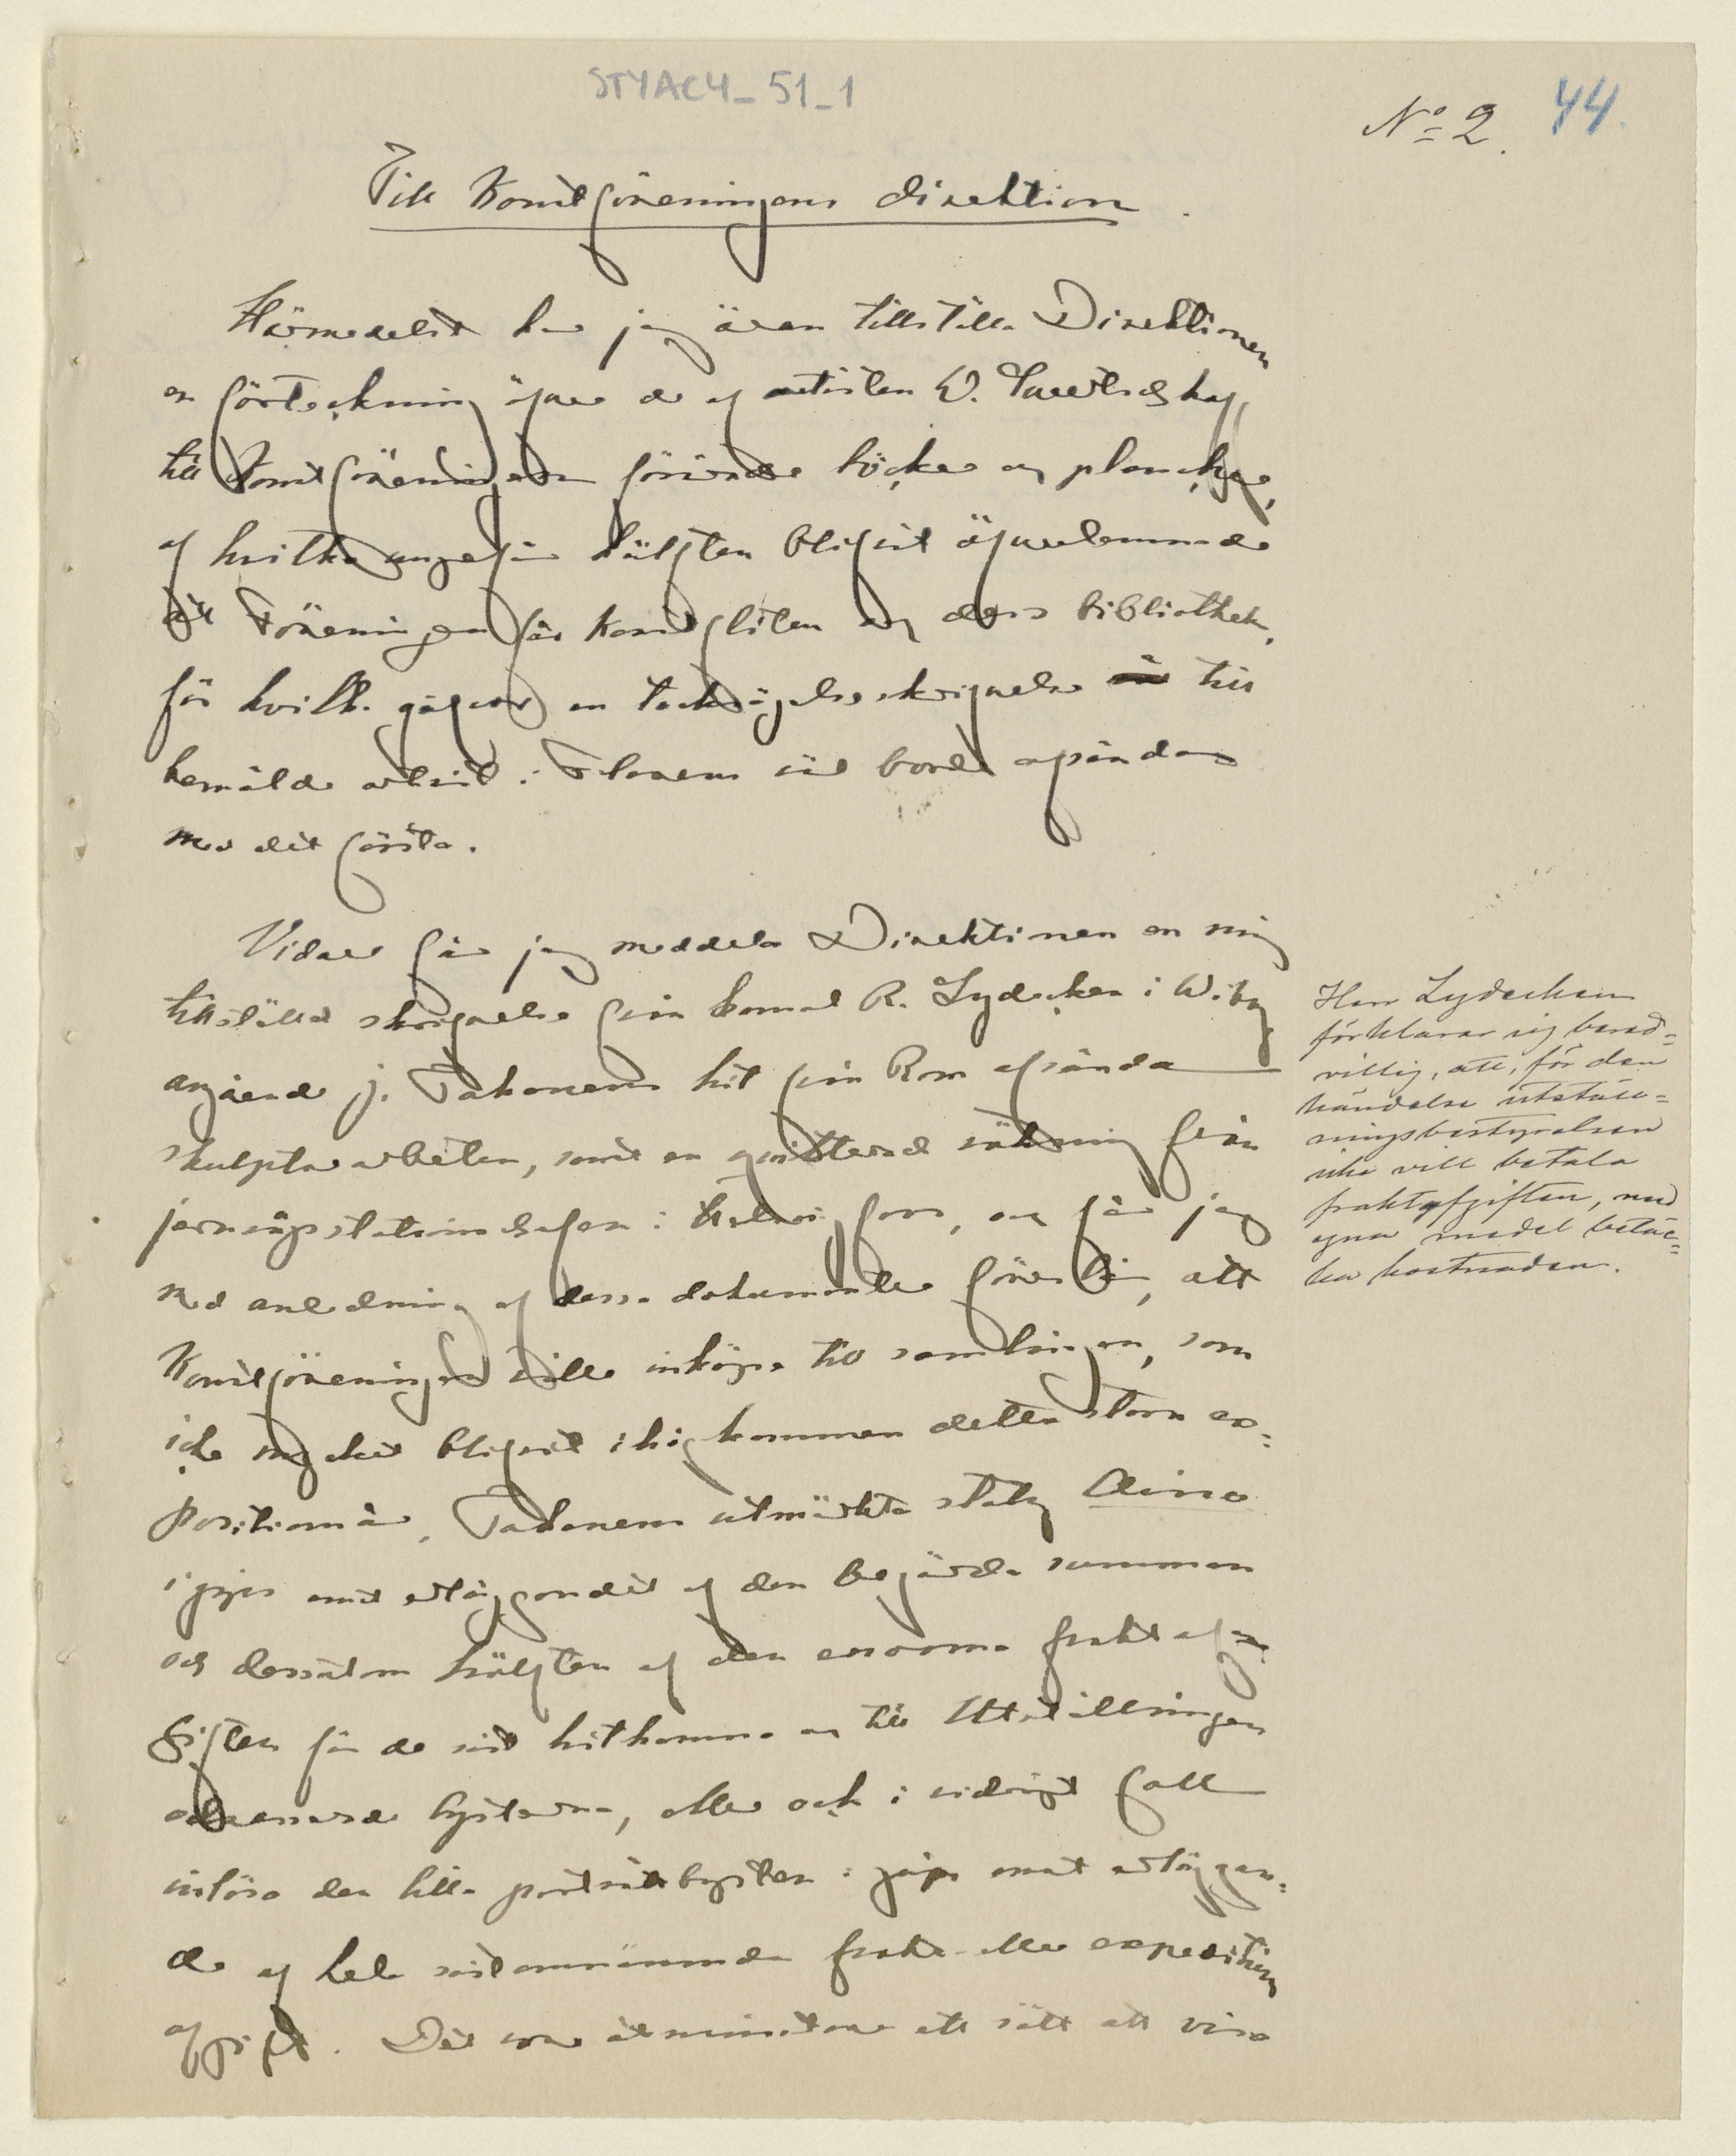 STYAC4_51_1
No 2. 44.
Till Konstföreningens direktion.
Härmedelst har jag äran tillställa Direktionen
en förteckning öfver de af artisten W.
till Konstföreningen förärade böcker och plancher,
af hvilka ungefär hälften blifvit öfverlemnade
åt Föreningen för konstfliten och dess bibliothek,
för hvilka gåfvor en tacksägelseskrifvelse till
bemälde artist i Florens väl borde afsändas
med det första.
Vidare får jag meddela Direktionen en mig
tillstäld skrifvelse från konsul R. Lydecken i W:bg
angående J. Takanens hit från Rom afsända
skulpturarbeten, samt en qvitterad räkning från
jernvägsstationschefen i Helsingfors, och får jag
med anledning af dessa dokumenter föreslå, att
Konstföreningen ville inköpa till samlingen, som
icke mycket blifvit ihågkommen detta stora ex=
positionsår, Takanens utmärkta staty Aino
i gips emot erläggandet af den begärda summan
och dessutom hälften af den enorma fraktaf=
giften för de nu hitkomna och till Utställningen
adresserade bysterna, eller ock i vidrigt fall
inlösa den lilla porträttbysten i gips emot erläggan=
de af hela sistomnämnda frakt- eller expeditions
afgift. Det vore åtminstone ett sätt att visa
Herr Lydecken
förklarar sig bered=
villig, att, för den
händelse utställ=
ningsbestyrelsen
icke vill betala
fraktafgiften, med
egna medel betäc=
ka kostnaden.